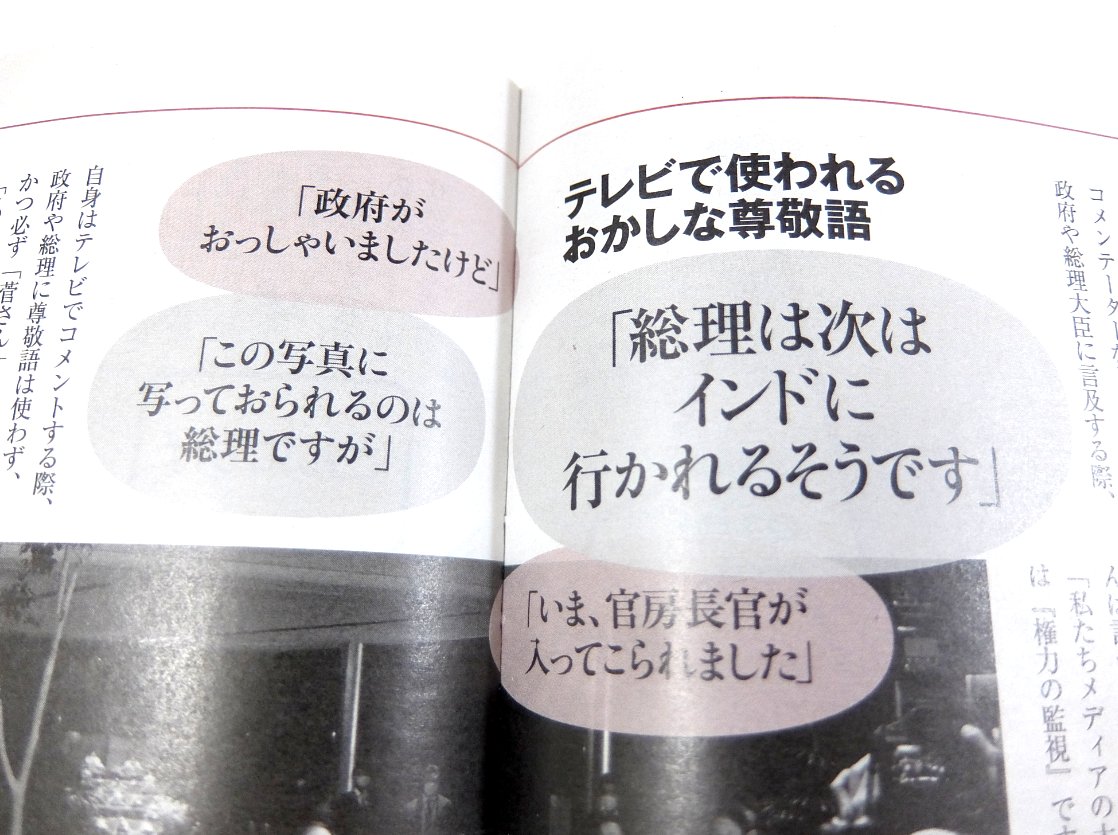 コメンテーター
政府や総理大臣に言及する際、
「私たちメディアの
は『権力の監視』で
テレビで使われる
おかしな尊敬語
「総理は次は
インドに
行かれるそうです」
「いま、官房長官が
入ってこられました」
「政府が
おっしゃいましたけど」
「この写真に
写っておられるのは
総理ですが」
自身はテレビでコメントする際、
政府や総理に尊敬語は使わず、
かつ必ず「菅さん」